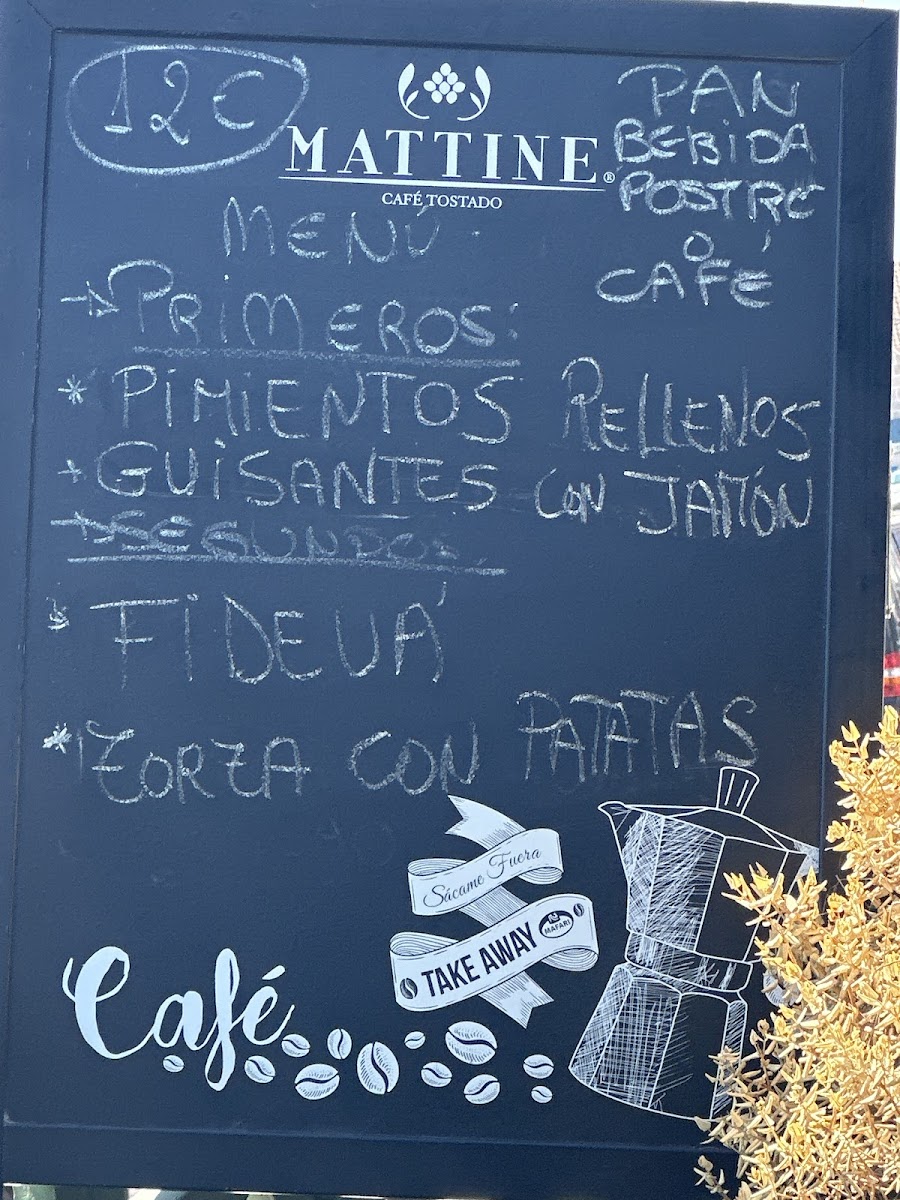 12€
MATTINE®
CAFÉ TOSTADO
PAN
BEBIDA
POSTRE
O
CAFÉ
MENÚ
→ PRIMEROS:
* PIMIENTOS RELLENOS
* GUISANTES CON JAMÓN
→ SEGUNDOS
* FIDEUÁ
* ZORZA CON PATATAS
Sácame Fuera
TAKE AWAY
MAFARI
Café